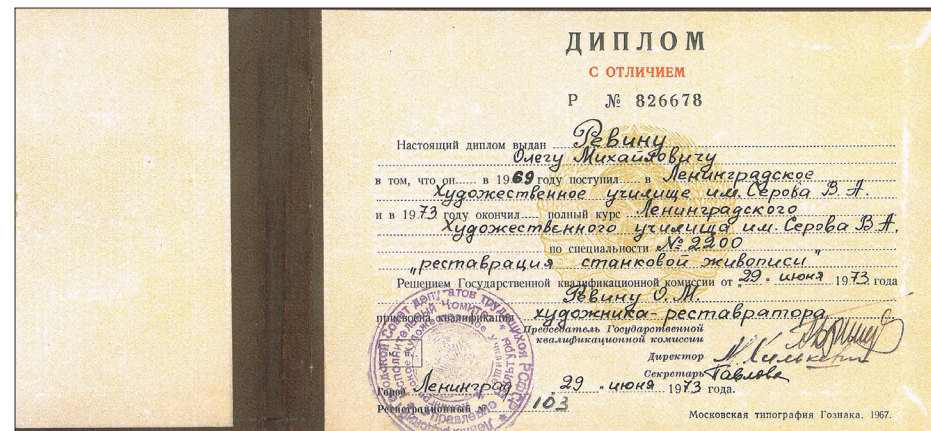 ДИПЛОМ
С ОТЛИЧИЕМ
Р № 826678
Настоящий диплом выдан Ревину
Олегу Михайловичу
в том, что он в 1969 году поступил в Ленинградское
Художественное училище им. Серова В. А.
и в 1973 году окончил полный курс Ленинградского
Художественного училища им. Серова В. А.
по специальности № 2200
"реставрация станковой живописи"
Решением Государственной квалификационной комиссии от 29 июня 1973 года
Ревину О. М.
присвоена квалификация художника-реставратора
Председатель Государственной
квалификационной комиссии
Директор
Секретарь Павлова
Город Ленинград 29 июня 1973 года.
Регистрационный № 103
Московская типография Гознака. 1967.